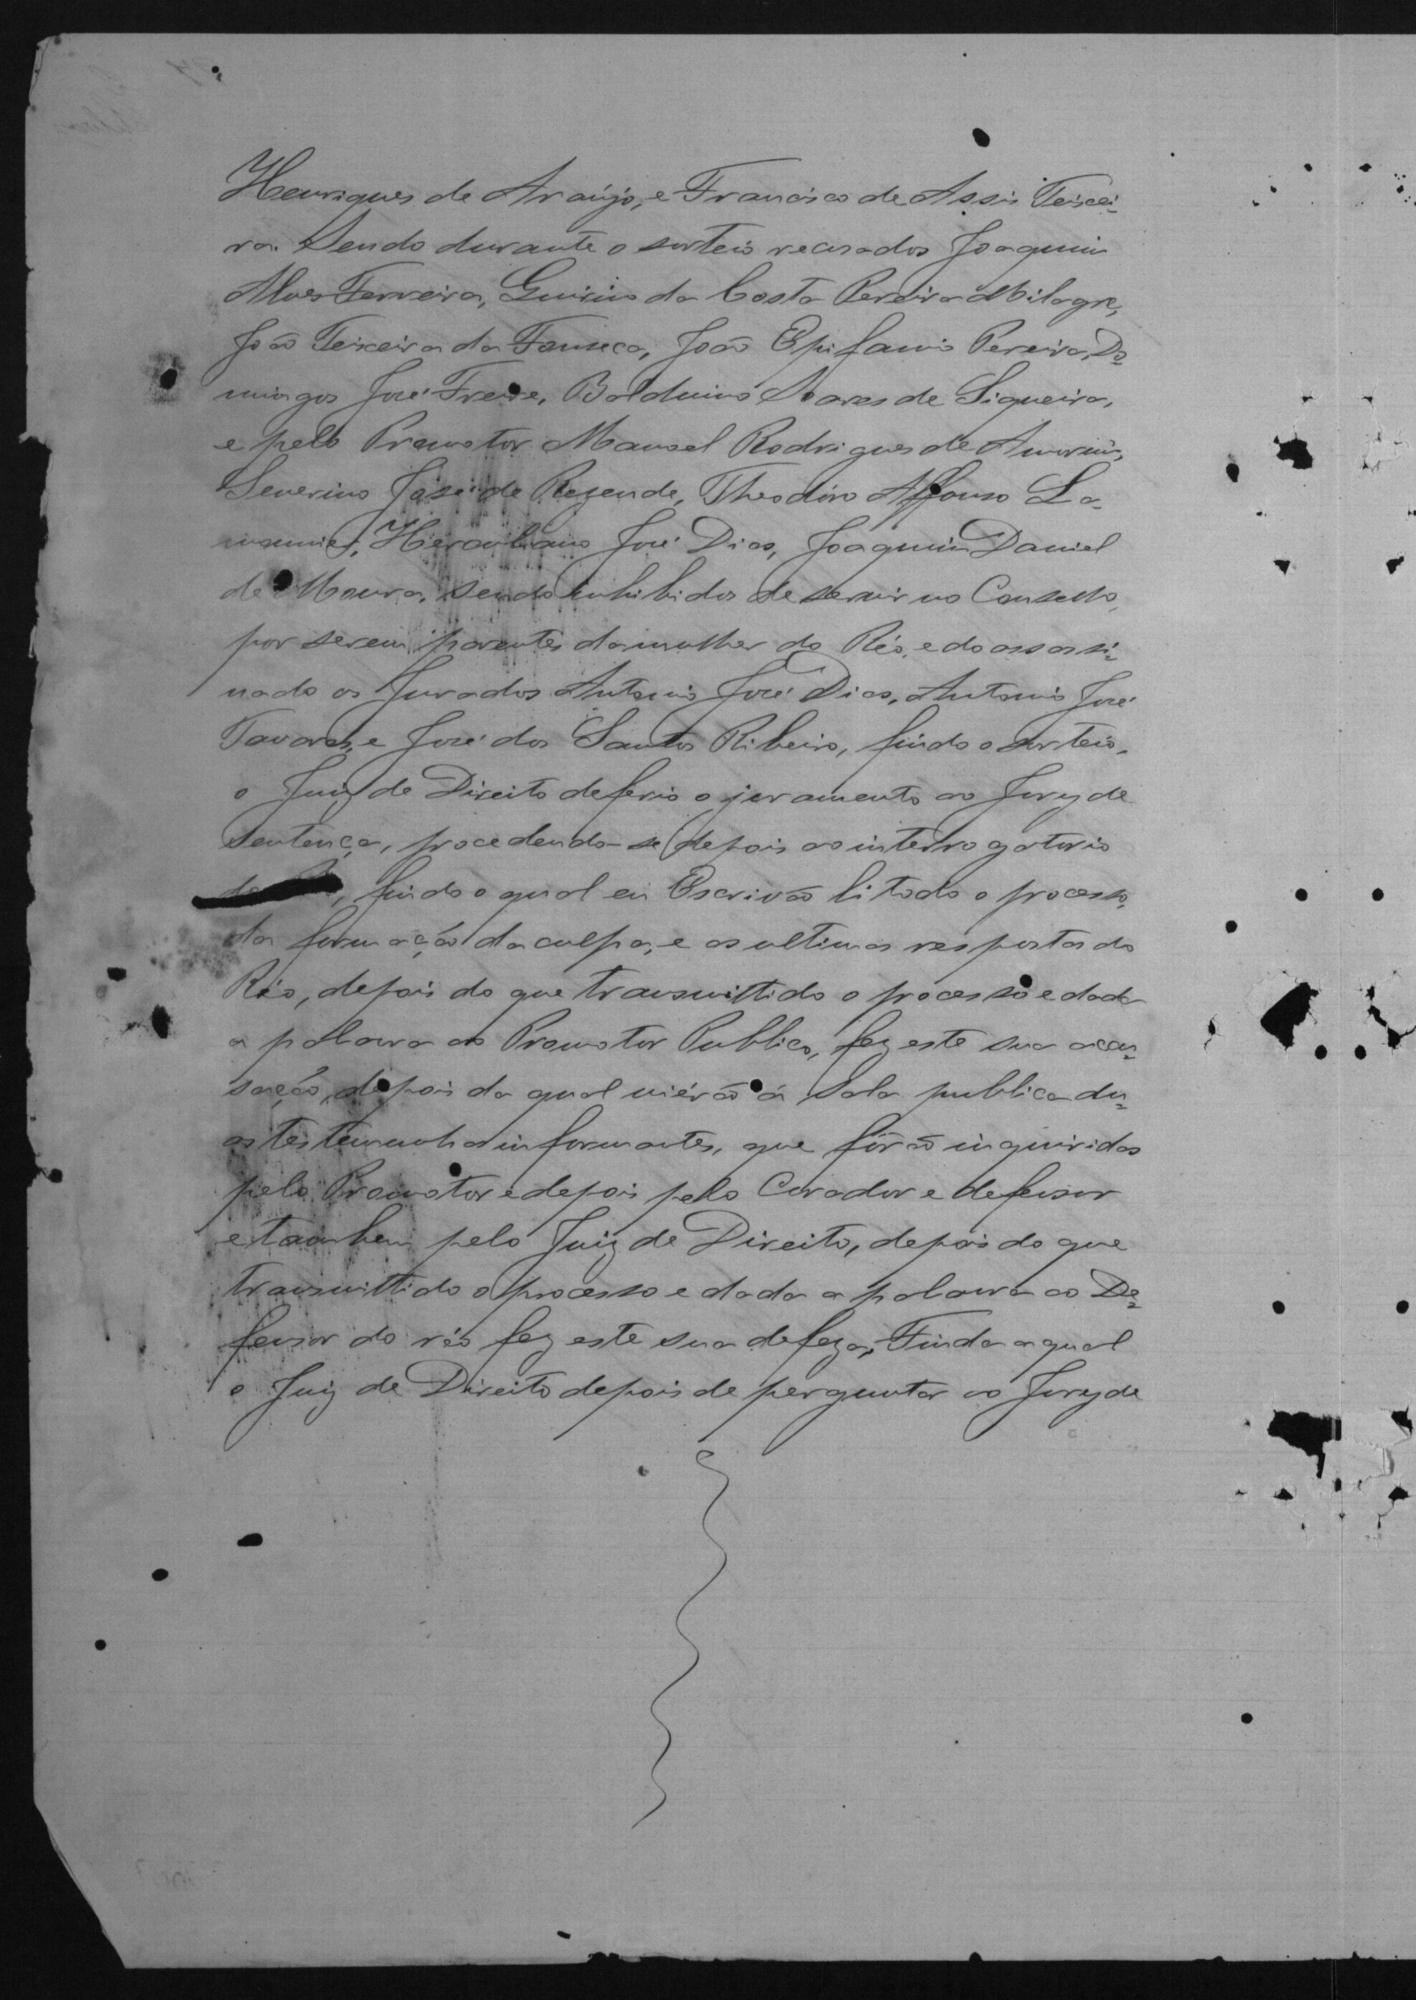 Henriques de Araújo, e Francisco de Assis Teixei-
ra. Sendo durante o sorteio recusados Joaquim
Alves Ferreira, Quirino da Costa Pereira Milagre,
João Teixeira da Fonseca, João Epifanio Pereira, Do-
mingos José Freire, Balduino Soares de Siqueira,
e pelo Promotor Manoel Rodrigues de Amorim,
Severino José de Rezende, Theodoro Affonso La-
mounier, Herculano José Dias, Joaquim Daniel
de Moura, sendo inhibidos de servir no Conselho,
por serem parentes da mulher do Réo, e do assassi-
nado os Jurados Antonio José Dias, Antonio José
Tavares, e José dos Santos Ribeiro, findo o sorteio,
o Juiz de Direito deferio o juramento ao Jury de
sentença, procedendo-se depois ao interrogatorio
do, findo o qual eu Escrivão li todo o processo,
da formação da culpa, e as ultimas respostas do
Réo, depois do que transmittido o processo e dada
a palavra ao Promotor Publico, fez este sua accu-
sação, depois da qual viérão á sala publica du-
as testemunha informantes, que fôrão inquiridas
pelo Promotor e depois pelo Curador e defensor
e tambem pelo Juiz de Direito, depois do que
transmittido o processo e dada a palavra ao De-
fensor do réo fez este sua defeza, Finda a qual
o Juiz de Direito depois de perguntar ao Jury de